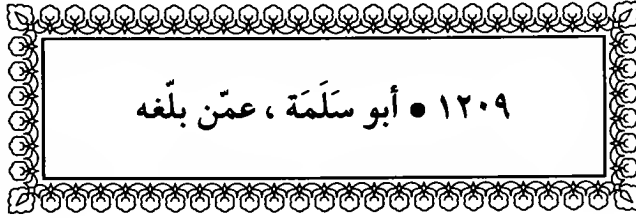 ١٢٠٩ • أبو سَلَمَة ، عمّن بلّغه